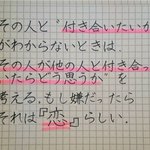 その人と“付き合いたいか”
がわからないときは、
その人が他の人と付き合って
いたらどう思うか”を
考える。もし嫌だったら
それは『恋』らしい。